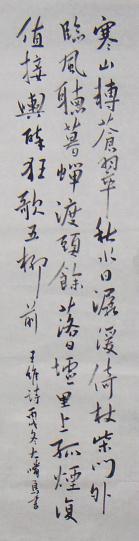 寒山轉蒼翠秋水日潺湲倚杖柴門外
臨風聽暮蟬渡頭餘落日墟里上孤煙復
值接輿醉狂歌五柳前
王維詩丙戌冬大嘴鳥書